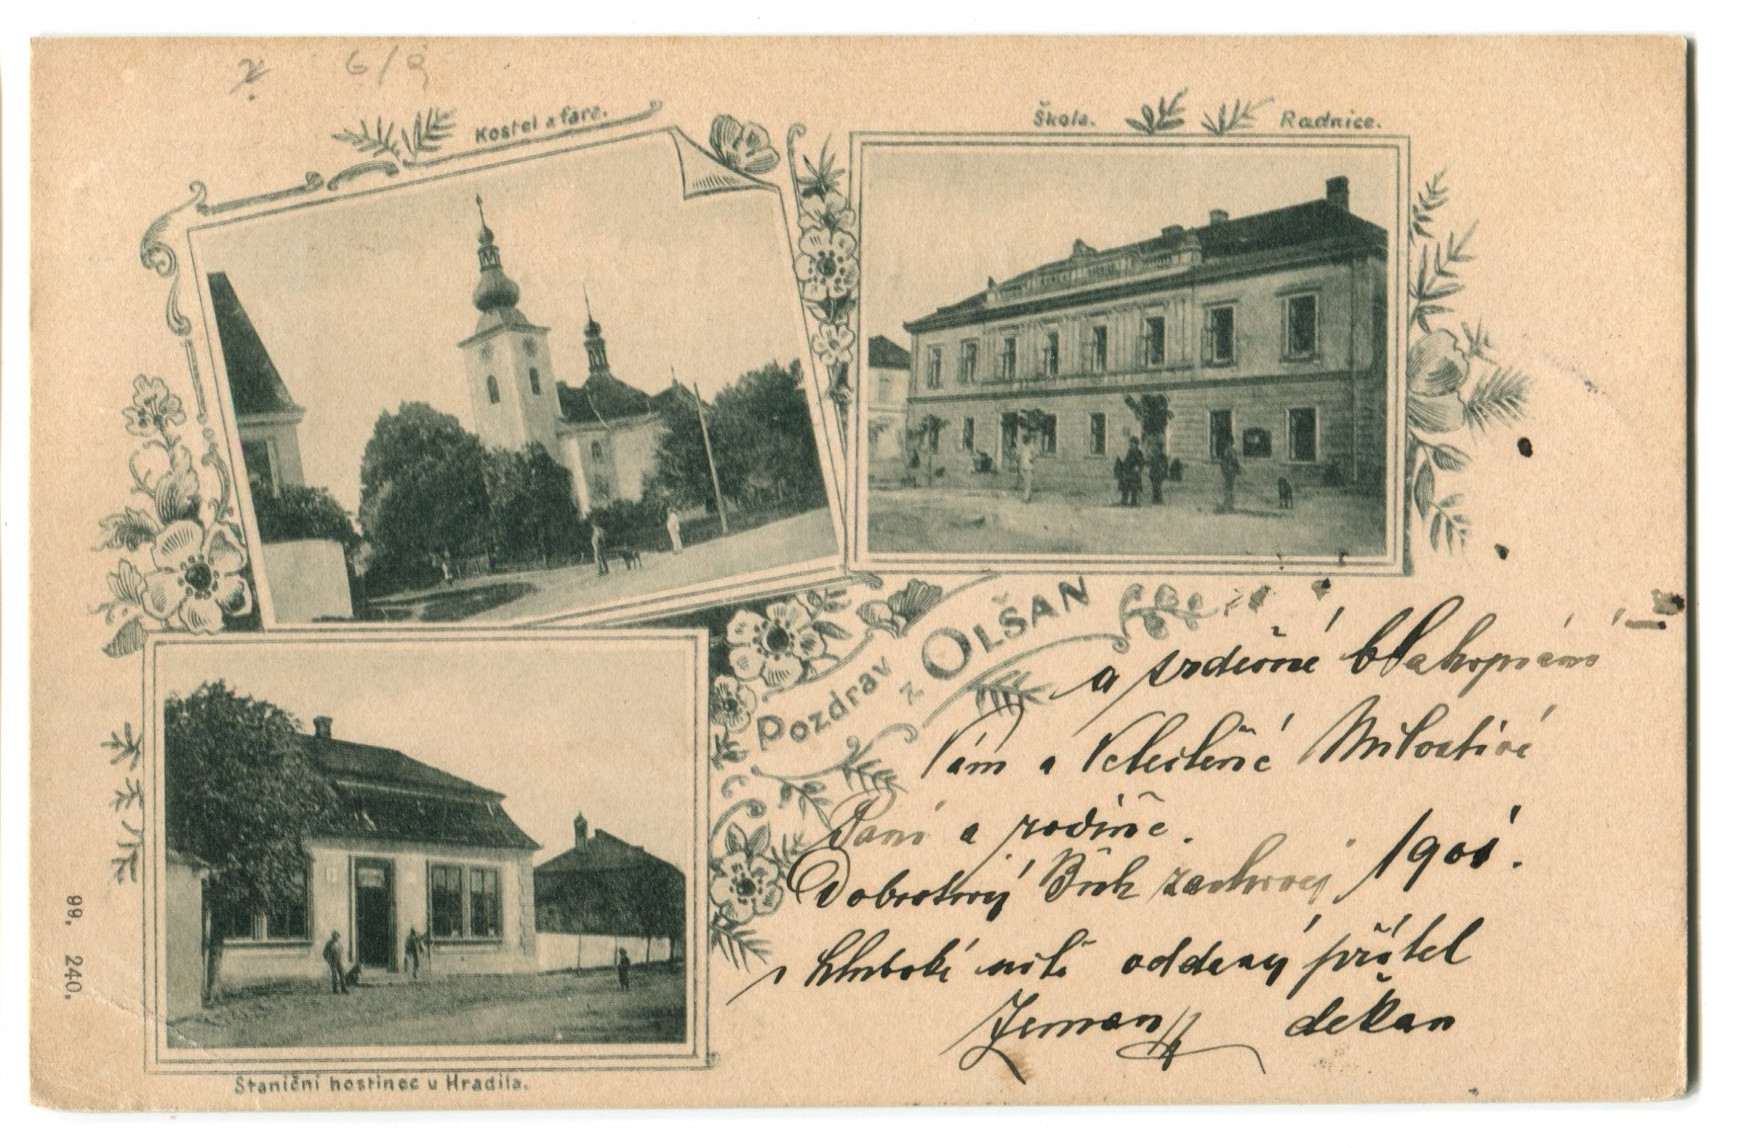 6/9
Kostel a fara.
Škola. Radnice.
Pozdrav z OLŠAN
a srdečné blahopřání
Vám a Velectěné Milostivé
Paní a rodině.
Dobrotivý Bůh zachovej 1901.
v hluboké úctě oddaný přítel
Zeman děkan
99. 240.
Staniční hostinec u Hradila.